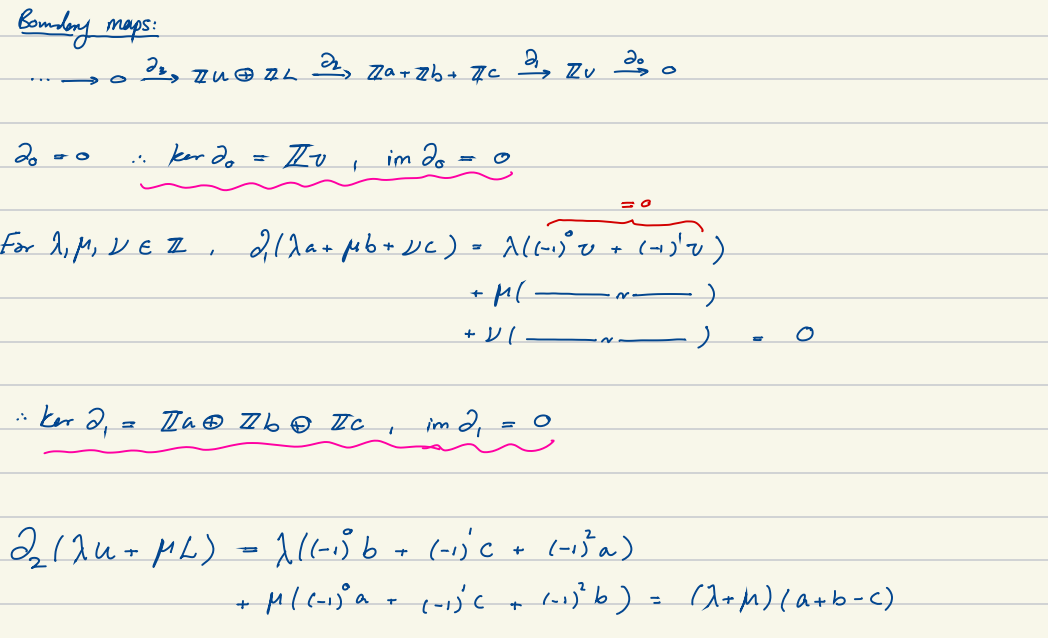 Boundary maps:
... ⟶ 0 —∂₃→ ℤu ⊕ ℤL —∂₂→ ℤa + ℤb + ℤc —∂₁→ ℤv —∂₀→ 0
∂₀ = 0 ∴ ker ∂₀ = ℤv , im ∂₀ = 0
= 0
For λ, μ, ν ∈ ℤ , ∂₁(λa + μb + νc) = λ((-1)⁰v + (-1)¹v)
+ μ( ——— ~ ——— )
+ ν( ——— ~ ——— ) = 0
∴ ker ∂₁ = ℤa ⊕ ℤb ⊕ ℤc , im ∂₁ = 0
∂₂(λu + μL) = λ((-1)⁰b + (-1)¹c + (-1)²a)
+ μ((-1)⁰a + (-1)¹c + (-1)²b) = (λ+μ)(a+b-c)